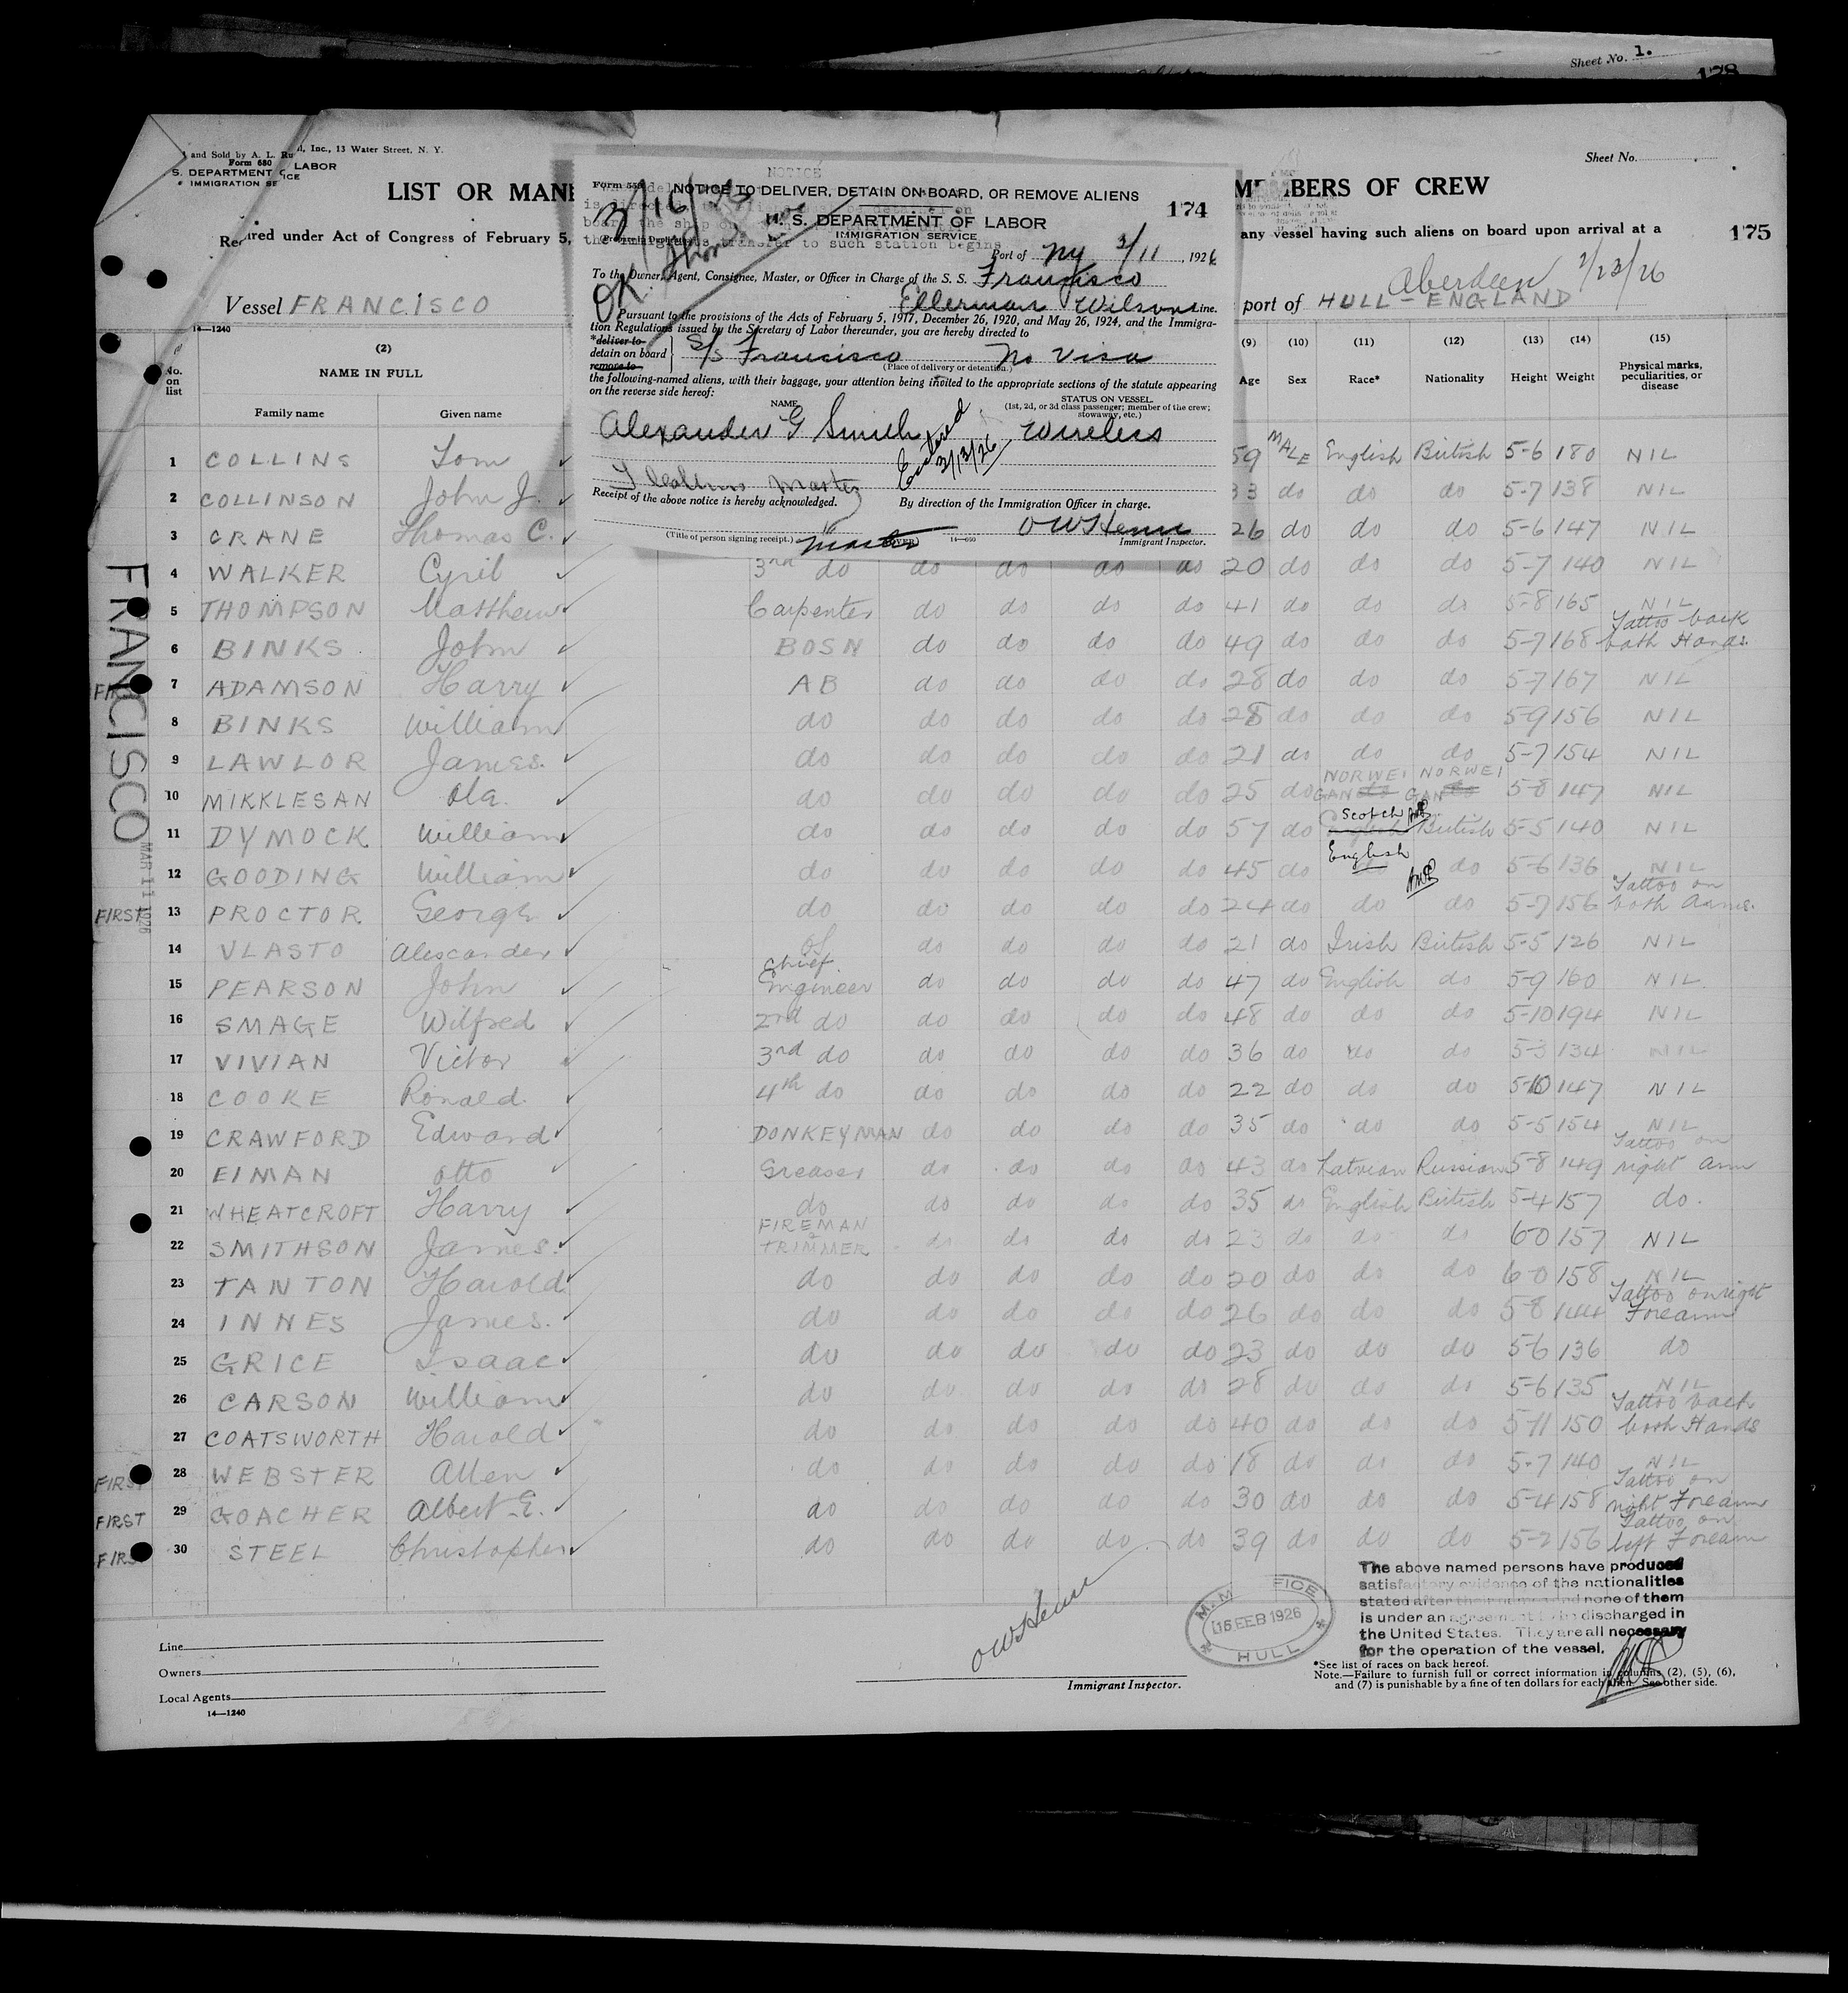 Sheet No. 1.
128
and Sold by A. L. Ru
l, Inc., 13 Water Street, N. Y.
Form 680
S. DEPARTMENT
LABOR
IMMIGRATION SE
ICE
Sheet No.
LIST OR MANI
MEMBERS OF CREW
175
Required under Act of Congress of February 5,
any vessel having such aliens on board upon arrival at a
Vessel FRANCISCO
Aberdeen 2/23/26
port of HULL - ENGLAND
14—1240
NOTICE
Form 558
NOTICE TO DELIVER, DETAIN ON BOARD, OR REMOVE ALIENS
174
3/16/26
U. S. DEPARTMENT OF LABOR
IMMIGRATION SERVICE
Port of NY 3/11, 1926
To the Owner, Agent, Consignee, Master, or Officer in Charge of the S. S. Francisco
OK
Ellerman Wilson Line.
Pursuant to the provisions of the Acts of February 5, 1917, December 26, 1920, and May 26, 1924, and the Immigra-
tion Regulations issued by the Secretary of Labor thereunder, you are hereby directed to
*deliver to
detain on board S/S Francisco No Visa
remove to
(Place of delivery or detention.)
the following-named aliens, with their baggage, your attention being invited to the appropriate sections of the statute appearing
on the reverse side hereof:
NAME
STATUS ON VESSEL
(1st, 2d, or 3d class passenger; member of the crew;
stowaway, etc.)
Alexander G Smith Wireless
3/13/26
T Collins Master
Receipt of the above notice is hereby acknowledged.
By direction of the Immigration Officer in charge.
(Title of person signing receipt.) Master
(OVER)
14—660
Immigrant Inspector.
No. on list
(2) NAME IN FULL
Family name
Given name
(9) Age
(10) Sex
(11) Race*
(12) Nationality
(13) Height
(14) Weight
(15) Physical marks, peculiarities, or disease
1 COLLINS Tom 59 MALE English British 5-6 180 NIL
2 COLLINSON John J. 33 do do do 5-7 138 NIL
3 CRANE Thomas C. 26 do do do 5-6 147 NIL
4 WALKER Cyril 3rd do do do do do 20 do do do 5-7 140 NIL
5 THOMPSON Matthew Carpenter do do do do 41 do do do 5-8 165 NIL
6 BINKS John BOSN do do do do 49 do do do 5-7 168 Tattoo back both Hands.
FIRST 7 ADAMSON Harry AB do do do do 28 do do do 5-7 167 NIL
8 BINKS William do do do do do 28 do do do 5-9 156 NIL
9 LAWLOR James. do do do do do 21 do do do 5-7 154 NIL
10 MIKKLESAN Ola. do do do do do 25 do NORWEIGAN NORWEIGAN 5-8 147 NIL
11 DYMOCK William do do do do do 57 do Scotch British 5-5 140 NIL
12 GOODING William do do do do do 45 do English do 5-6 136 NIL
FIRST 13 PROCTOR George do do do do do 24 do do do 5-7 156 Tattoo on both Arms.
14 VLASTO Alexander do do do do 21 do Irish British 5-5 126 NIL
15 PEARSON John Chief Engineer do do do do 47 do English do 5-9 160 NIL
16 SMAGE Wilfred 2nd do do do do do 48 do do do 5-10 194 NIL
17 VIVIAN Victor 3rd do do do do do 36 do do do 5-3 134 NIL
18 COOKE Ronald. 4th do do do do do 22 do do do 5-10 147 NIL
19 CRAWFORD Edward DONKEYMAN do do do do 35 do do do 5-5 154 NIL
20 EIMAN Otto Greaser do do do do 43 do Latvian Russian 5-8 149 Tattoo on right arm
21 WHEATCROFT Harry do do do do do 35 do English British 5-4 157 do.
22 SMITHSON James. FIREMAN & TRIMMER do do do do 23 do do do 6-0 157 NIL
23 TANTON Harold do do do do do 20 do do do 6-0 158 NIL
24 INNES James. do do do do do 26 do do do 5-8 144 Tattoo on right Forearm
25 GRICE Isaac do do do do do 23 do do do 5-6 136 do
26 CARSON William do do do do do 28 do do do 5-6 135 NIL
27 COATSWORTH Harold do do do do do 40 do do do 5-11 150 Tattoo back both Hands
FIRST 28 WEBSTER Allen do do do do do 18 do do do 5-7 140 NIL
FIRST 29 GOACHER Albert E. do do do do do 30 do do do 5-4 158 Tattoo on right Forearm
FIRST 30 STEEL Christopher do do do do do 39 do do do 5-2 156 Tattoo on left Forearm
FRANCISCO
MAR 11 1926
The above named persons have produced
satisfactory evidence of the nationalities
stated after their names and none of them
is under an agreement to be discharged in
the United States. They are all necessary
for the operation of the vessel.
M.M. OFFICE
15 FEB 1926
HULL
Line
Owners
Local Agents
14—1240
Immigrant Inspector.
*See list of races on back hereof.
Note.—Failure to furnish full or correct information in columns (2), (5), (6),
and (7) is punishable by a fine of ten dollars for each alien. See other side.